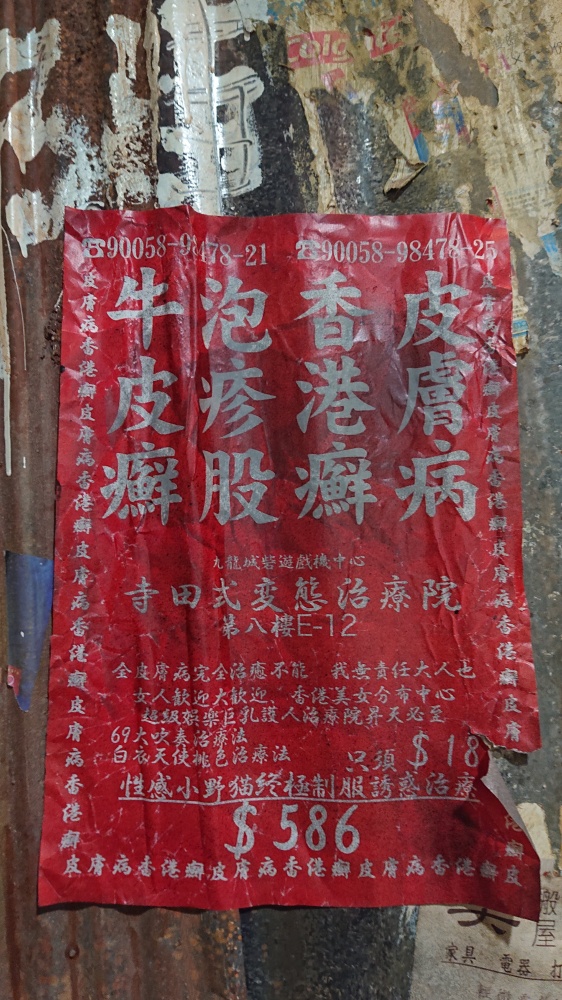 Colgate
☎90058-98478-21 ☎90058-98478-25
皮膚病
香港癬
泡疹股
牛皮癬
九龍城砦遊戲機中心
寺田式変態治療院
第八樓E-12
全皮膚病完全治癒不能 我無責任大人也
女人歓迎大歓迎 香港美女分布中心
超級娯楽巨乳護人治療院昇天必至
69大吹奏治療法
白衣天使桃色治療法 只須$18
性感小野猫終極制服誘惑治療
$586
皮膚病香港癬皮膚病香港癬皮膚病香港癬皮膚病香港癬
皮膚病香港癬皮膚病香港癬皮膚病香港癬皮膚
港癬
皮膚病香港癬皮膚病香港癬皮膚病香港癬皮
搬屋
家具 電器